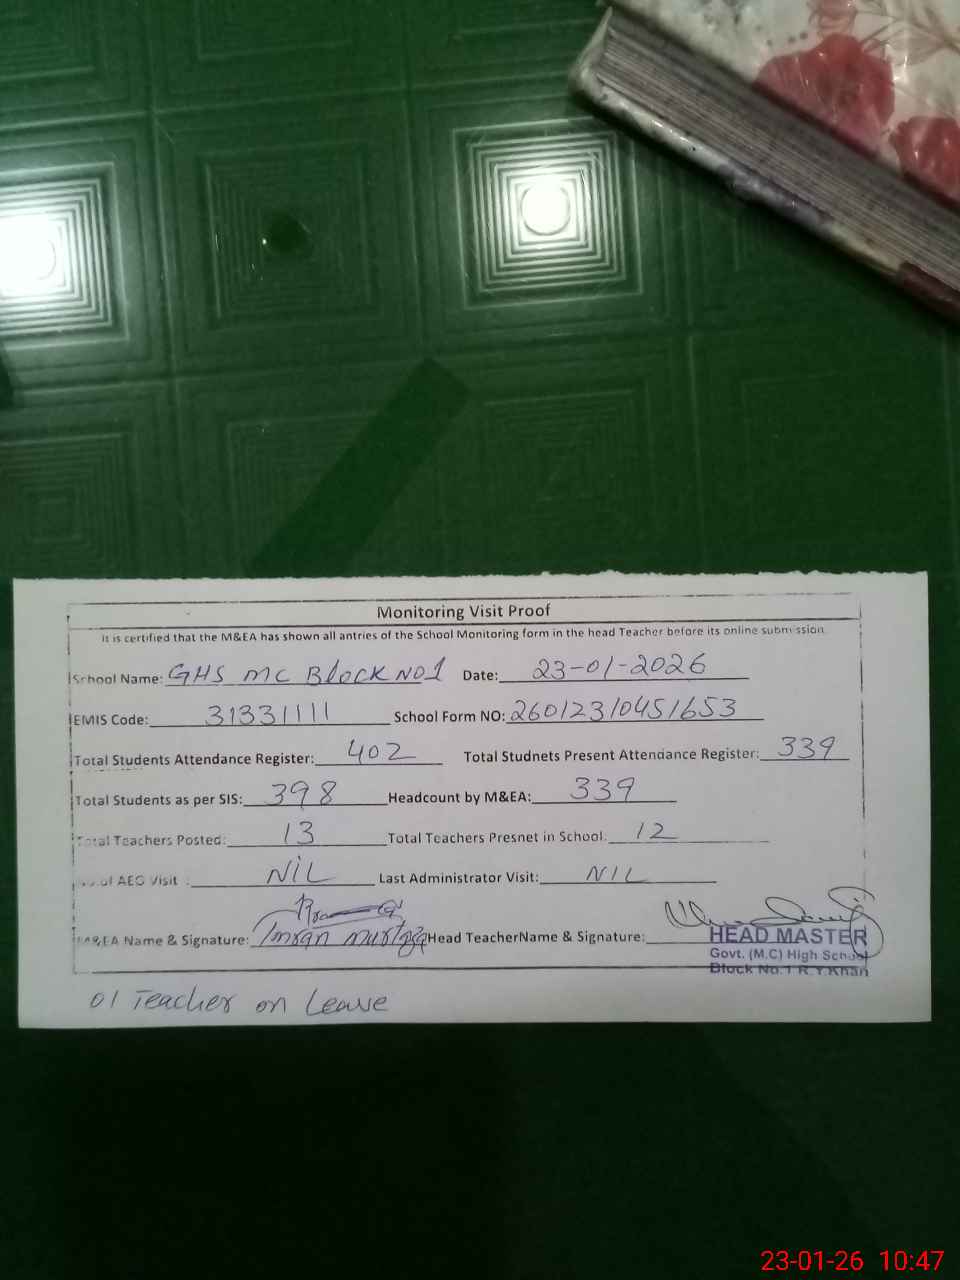 Monitoring Visit Proof
It is certified that the M&EA has shown all antries of the School Monitoring form in the head Teacher before its online submission.
School Name: GHS MC Block NO1 Date: 23-01-2026
EMIS Code: 31331111 School Form NO: 26012310451653
Total Students Attendance Register: 402 Total Studnets Present Attendance Register: 339
Total Students as per SIS: 398 Headcount by M&EA: 339
Total Teachers Posted: 13 Total Teachers Presnet in School. 12
of AEO Visit : NIL Last Administrator Visit: NIL
M&EA Name & Signature: Imran Murtaza Head TeacherName & Signature:
HEAD MASTER
Govt. (M.C) High School
Block No.1 R.Y.Khan
01 Teacher on Leave
23-01-26 10:47